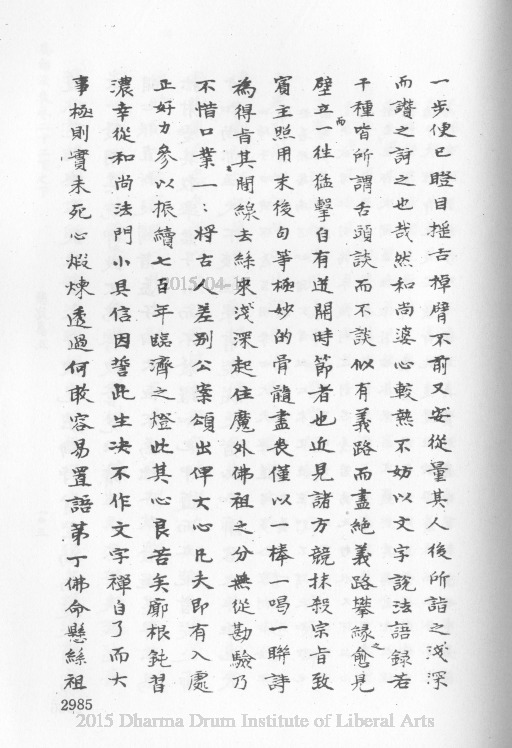 一步便已瞪目搖舌掉臂不前又安從量其人後所詣之淺深
而讚之訶之也哉然和尚婆心較熱不妨以文字說法語錄若
干種皆所謂舌頭談而不談似有義路而盡絕義路攀緣之愈見
壁立一徃而猛擊自有迸開時節者也近見諸方競抹殺宗旨致
賓主照用末後句等極妙的骨髓盡喪僅以一棒一喝一聯詩
為得旨其間線去絲來淺深起住魔外佛祖之分無從勘驗乃
不惜口業一一將古人差別公案頌出俾大心凡夫即有入處
正好力參以振續七百年臨濟之燈此其心良苦矣廓根鈍習
濃幸從和尚法門小具信因誓此生決不作文字禪自了而大
事極則實未死心煅煉透過何敢容易置語第丁佛命懸絲祖
2985
2015-04-1
2015 Dharma Drum Institute of Liberal Arts